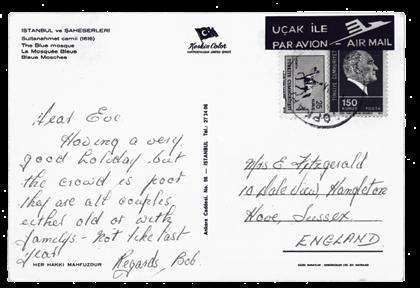 İSTANBUL ve ŞAHESERLERİ
Sultanahmet camii (1616)
The Blue mosque
La Mosquée Bleue
Blaue Mosches
Keskin Color
UÇAK İLE
PAR AVION - AIR MAIL
25
150
KURUŞ POSTA
Dear Eve
Having a very
good holiday but
the crowd is poor
they are all couples
either old or with
familys - Not like last
year
Regards, Bob.
HER HAKKI MAHFUZDUR
Ankara Caddesi, No. 98 - İSTANBUL Tel.: 27 34 06
Mrs E Fitzgerald
10 Dale View, Hangleton
Hove, Sussex.
ENGLAND.